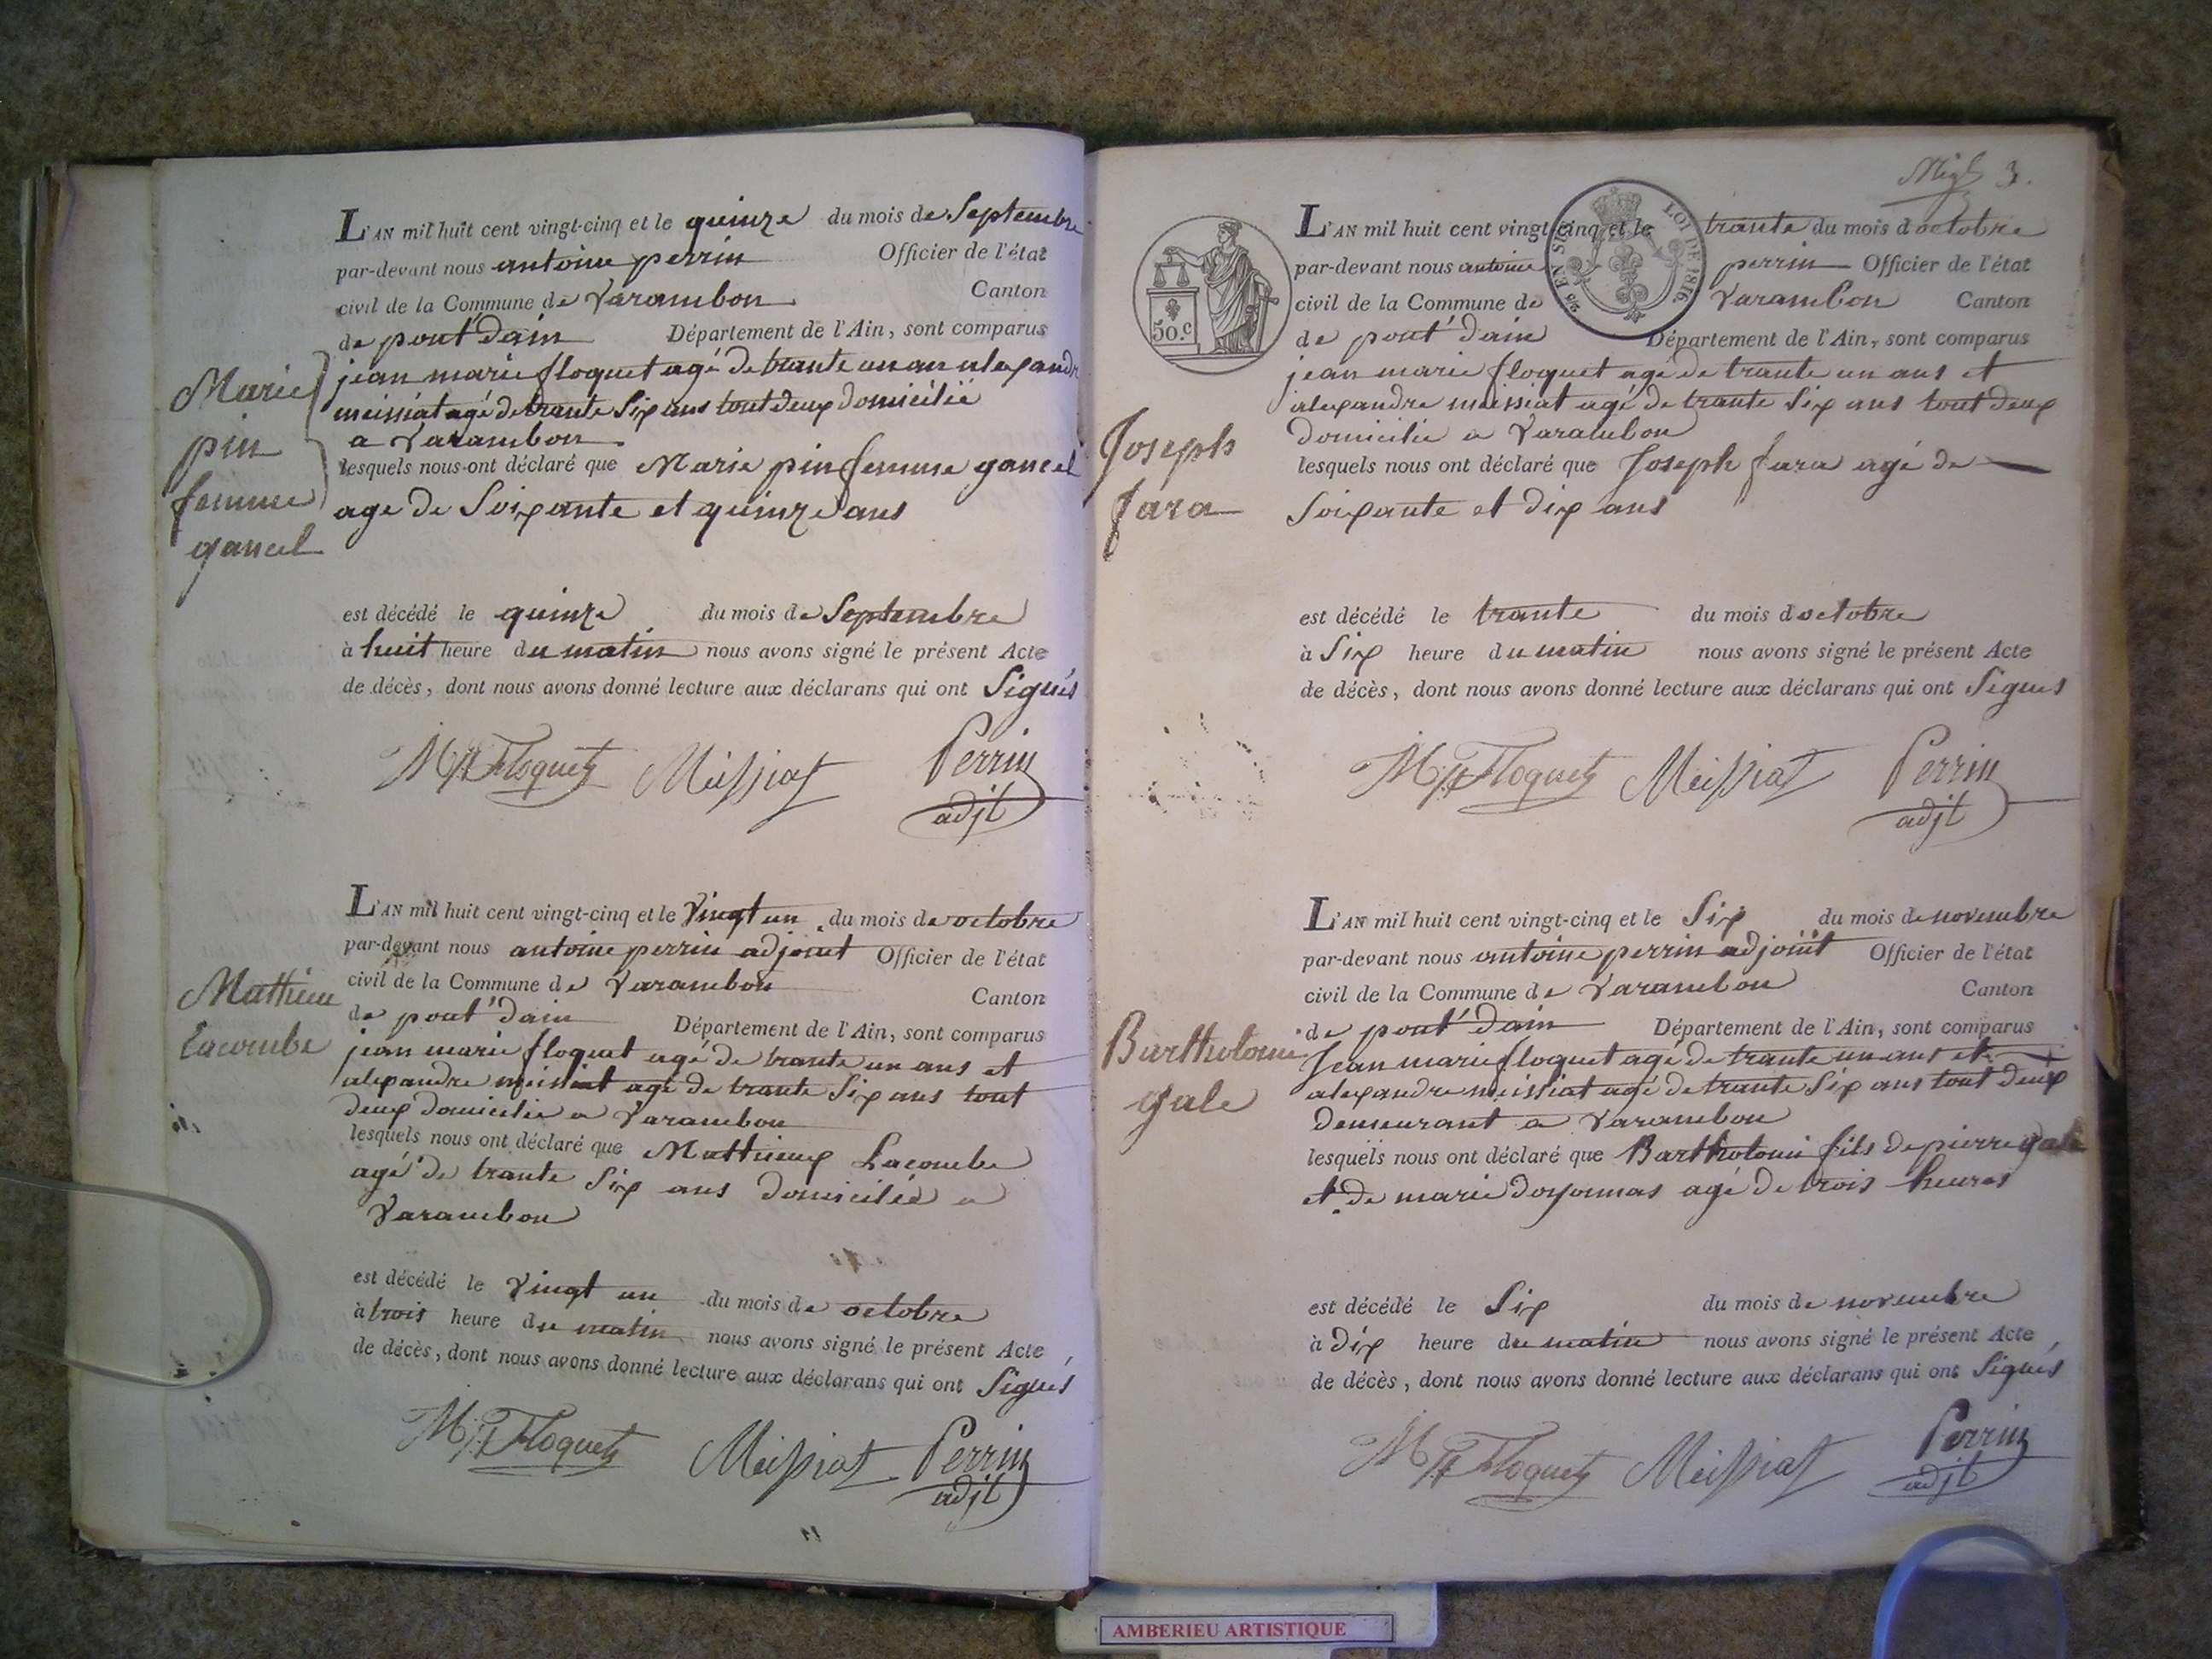 L'AN mil huit cent vingt-cinq et le quinze du mois de Septembre
par-devant nous antoine perrin Officier de l'état
civil de la Commune de Varambon Canton
de pont d'ain Département de l'Ain, sont comparus
jean marie floquet agé de trante un an alexandre
meissiat agé de trante Six ans tout deux domicilié
a Varambon
Marie
pin
femme
gancel
lesquels nous ont déclaré que Marie pin femme gancel
age de Soixante et quinze ans
est décédé le quinze du mois de Septembre
à huit heure du matin nous avons signé le présent Acte
de décès, dont nous avons donné lecture aux déclarans qui ont Signés
Floquet Meissiat Perrin
adjt
L'AN mil huit cent vingt-cinq et le Vingt un du mois de octobre
par-devant nous antoine perrin adjoint Officier de l'état
civil de la Commune de Varambon Canton
de pont d'ain Département de l'Ain, sont comparus
Mathieu
Lacombe
jean marie floquet agé de trante un ans et
alexandre meissiat agé de trante Six ans tout
deux domicilié a Varambon
lesquels nous ont déclaré que Matthieux Lacombe
agé de trante Six ans domicilié a
Varambon
est décédé le Vingt un du mois de octobre
à trois heure du matin nous avons signé le présent Acte
de décès, dont nous avons donné lecture aux déclarans qui ont Signés
Floquet Meissiat Perrin
adjt
3.
50.c
LOI DE 1816
L'AN mil huit cent vingt-cinq et le trante du mois d octobre
par-devant nous antoine perrin Officier de l'état
civil de la Commune de Varambon Canton
de pont d'ain Département de l'Ain, sont comparus
jean marie floquet agé de trante un ans et
alexandre meissiat agé de trante Six ans tout deux
domicilié a Varambon
Joseph
fara
lesquels nous ont déclaré que Joseph fara agé de
Soixante et dix ans
est décédé le trante du mois d octobre
à Six heure du matin nous avons signé le présent Acte
de décès, dont nous avons donné lecture aux déclarans qui ont Signés
Floquet Meissiat Perrin
adjt
L'AN mil huit cent vingt-cinq et le Six du mois de novembre
par-devant nous antoine perrin adjoint Officier de l'état
civil de la Commune de Varambon Canton
de pont d'ain Département de l'Ain, sont comparus
Bartholomi
gale
Jean marie floquet agé de trante un ans et
alexandre meissiat agé de trante Six ans tout deux
demeurant a Varambon
lesquels nous ont déclaré que Bartholomi fils de pierre gale
et de marie doyonnas agé de trois heures
est décédé le Six du mois de novembre
à dix heure du matin nous avons signé le présent Acte
de décès, dont nous avons donné lecture aux déclarans qui ont Signés
Floquet Meissiat Perrin
adjt
AMBERIEU ARTISTIQUE